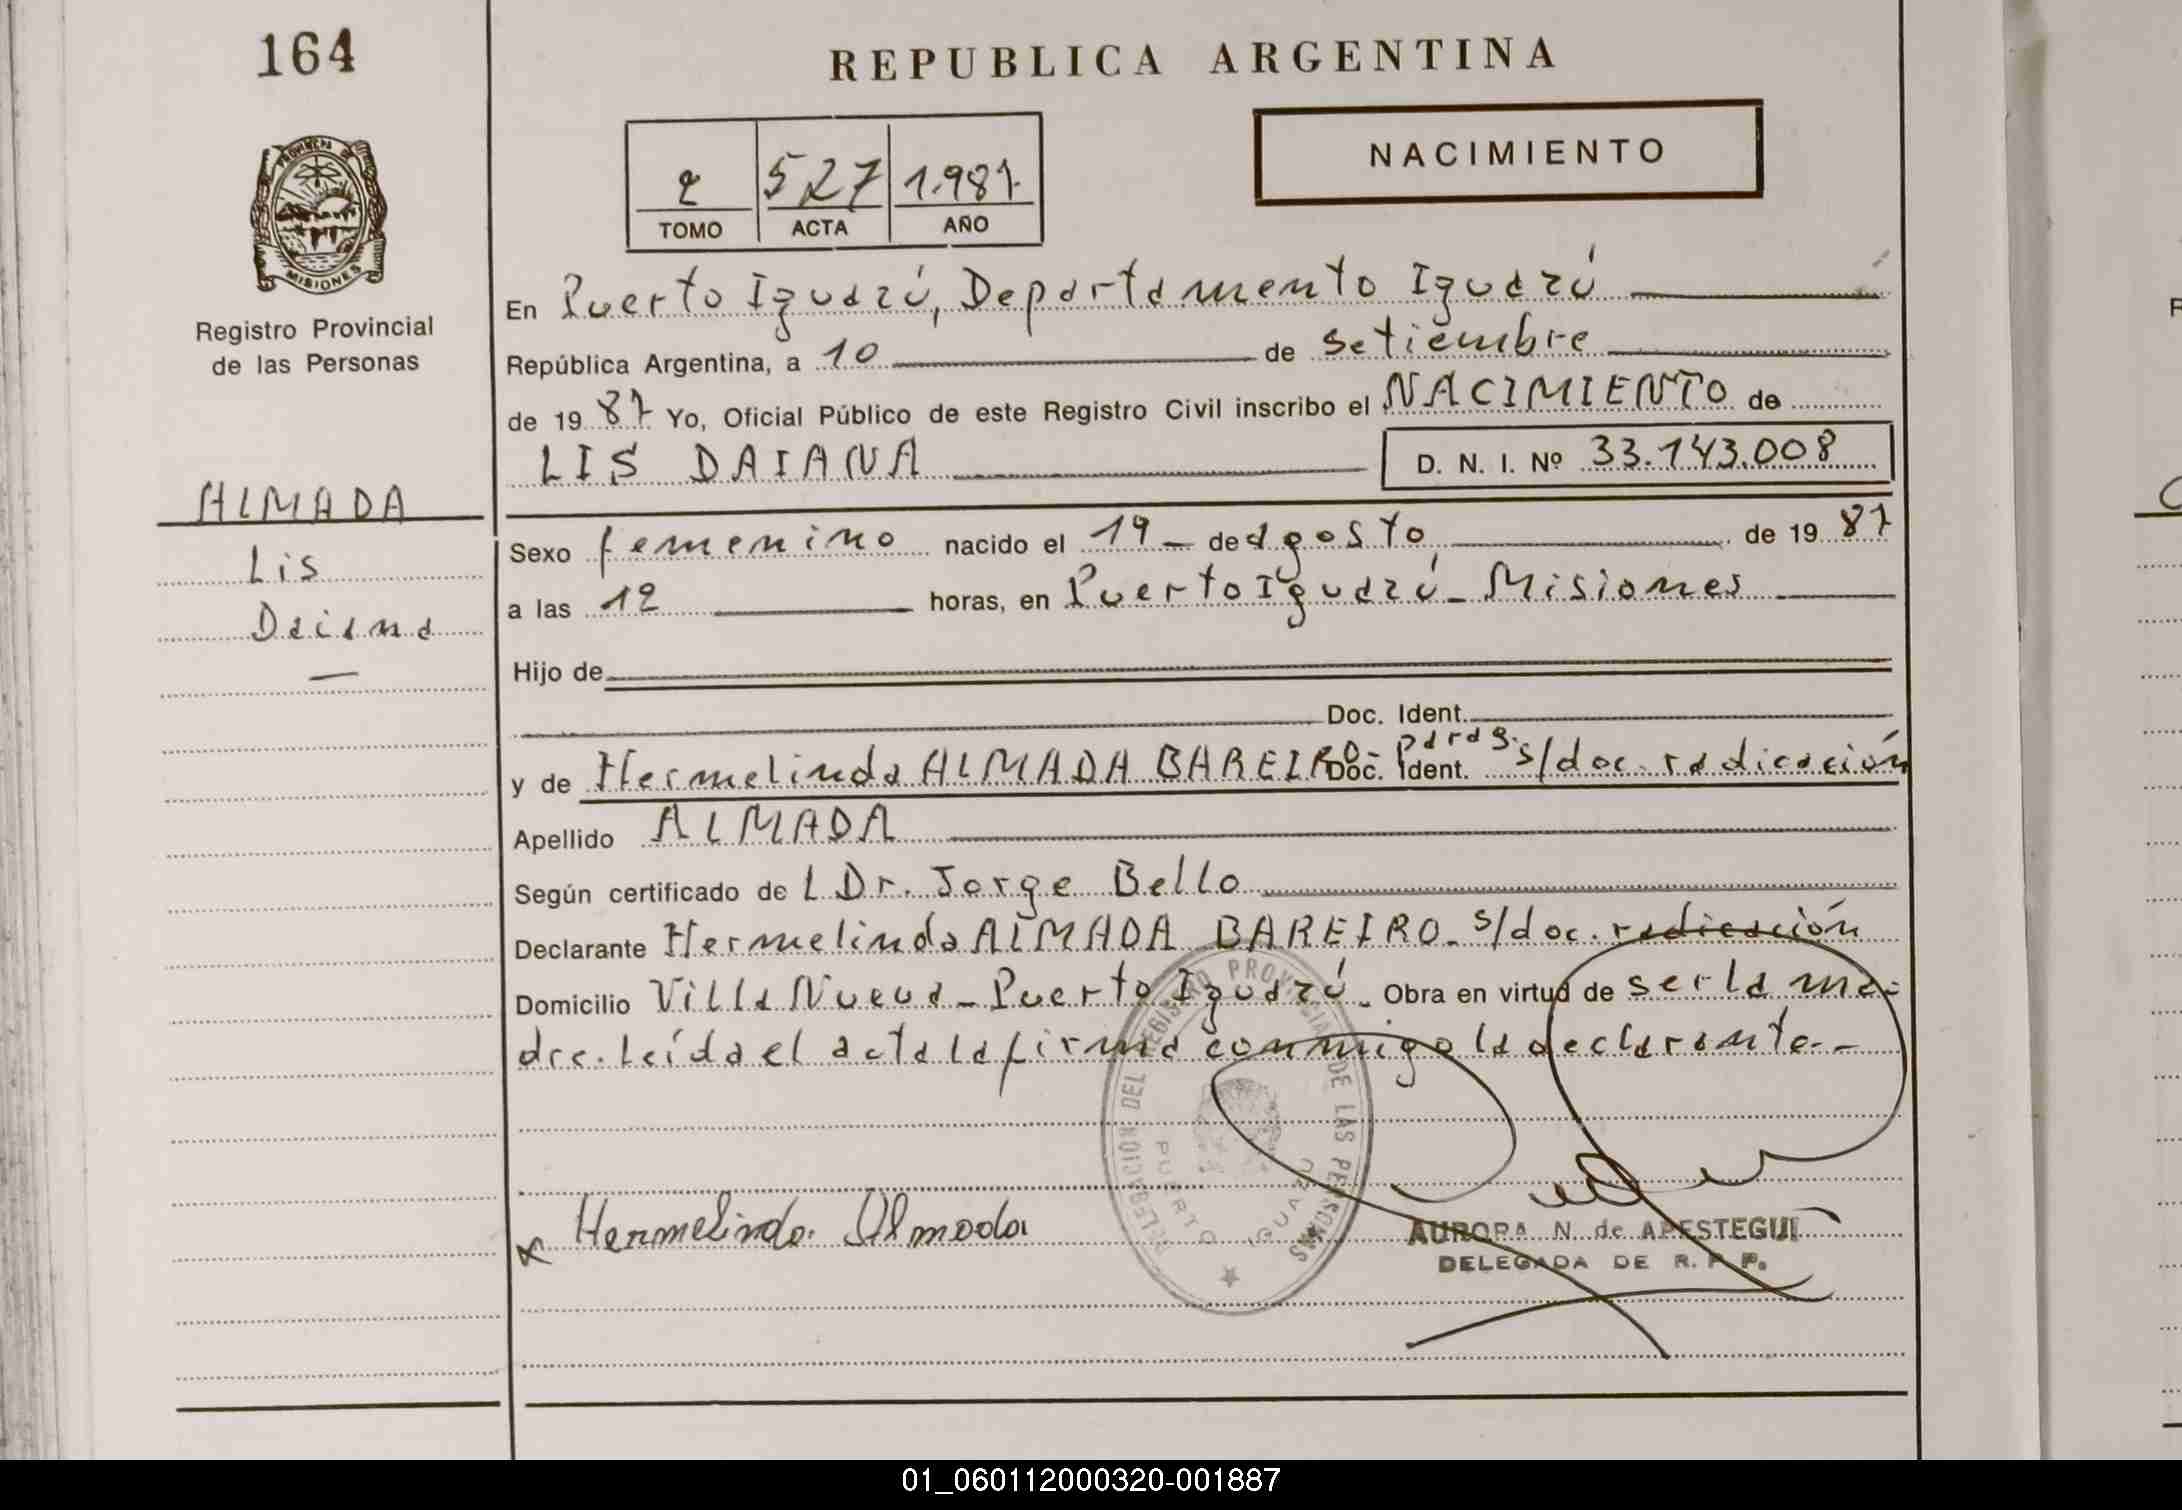 164
REPUBLICA ARGENTINA
NACIMIENTO
2 527 1.987.
TOMO ACTA AÑO
PROVINCIA DE
MISIONES
Registro Provincial
de las Personas
En Puerto Iguazú, Departamento Iguazú
República Argentina, a 10 de setiembre
de 19 87 Yo, Oficial Público de este Registro Civil inscribo el NACIMIENTO de
LIS DAIANA D. N. I. Nº 33.143.008
ALMADA
Lis
Daiana
Sexo femenino nacido el 19 de agosto de 19 87
a las 12 horas, en Puerto Iguazú - Misiones
Hijo de
Doc. Ident.
y de Hermelinda ALMADA BAREIRO - parag. Doc. Ident. s/doc. radicación
Apellido ALMADA
Según certificado de L Dr. Jorge Bello
Declarante Hermelinda ALMADA BAREIRO - s/doc. radicación
Domicilio Villa Nueva - Puerto Iguazú. Obra en virtud de ser la ma-
dre. Leída el acta la firma conmigo la declarante.-
DELEGACION DEL REGISTRO PROVINCIAL DE LAS PERSONAS
PUERTO IGUAZU
x Hermelinda Almada
AURORA N. de APESTEGUI
DELEGADA DE R. P. P.
01_060112000320-001887